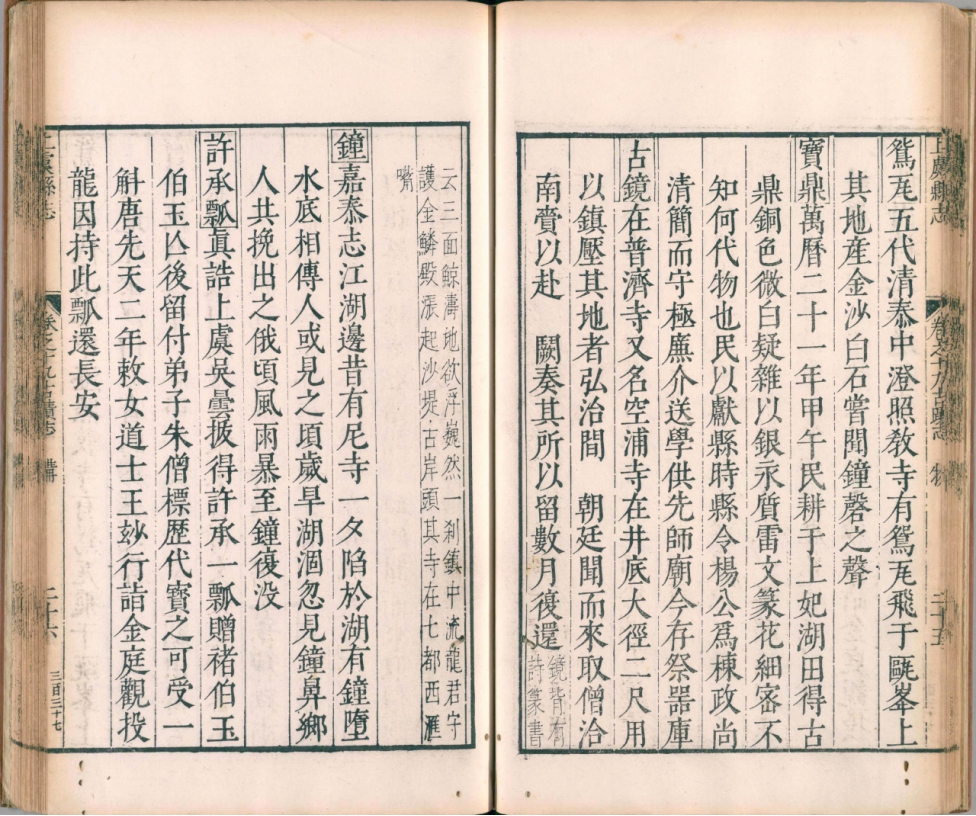 鴛瓦五代清泰中澄照教寺有鴛瓦飛于毷峯上
其地産金沙白石嘗聞鐘磬之聲
寶鼎萬曆二十一年甲午民耕于上妃湖田得古
鼎銅色微白疑雜以銀永質雷文篆花細密不
知何代物也民以獻縣時縣令楊公爲棟政尚
清簡而守極廉介送學供先師廟今存祭器庫
古鏡在普濟寺又名空浦寺在井底大徑二尺用
以鎮壓其地者弘治間 朝廷聞而來取僧洽
南賫以赴 闕奏其所以留數月復還鏡背有
詩篆書
上虞縣志
卷之十九古蹟志
二十五
云三面鯨濤地欲浮巍然一刹鎮中流龍君守
護金鱗殿漲起沙堤古岸頭其寺在七都西滙
嘴
鐘嘉泰志江湖邊昔有尼寺一夕陷於湖有鐘墮
水底相傳人或見之頃歲旱湖涸忽見鐘鼻鄉
人共挽出之俄頃風雨暴至鐘復没
許承瓢眞誥上虞吴曇拔得許承一瓢贈褚伯玉
伯玉亾後留付弟子朱僧標歷代寶之可受一
斛唐先天二年敕女道士王妙行詣金庭觀投
龍因持此瓢還長安
上虞縣志
卷之十九古蹟志
二十六
三百三十七